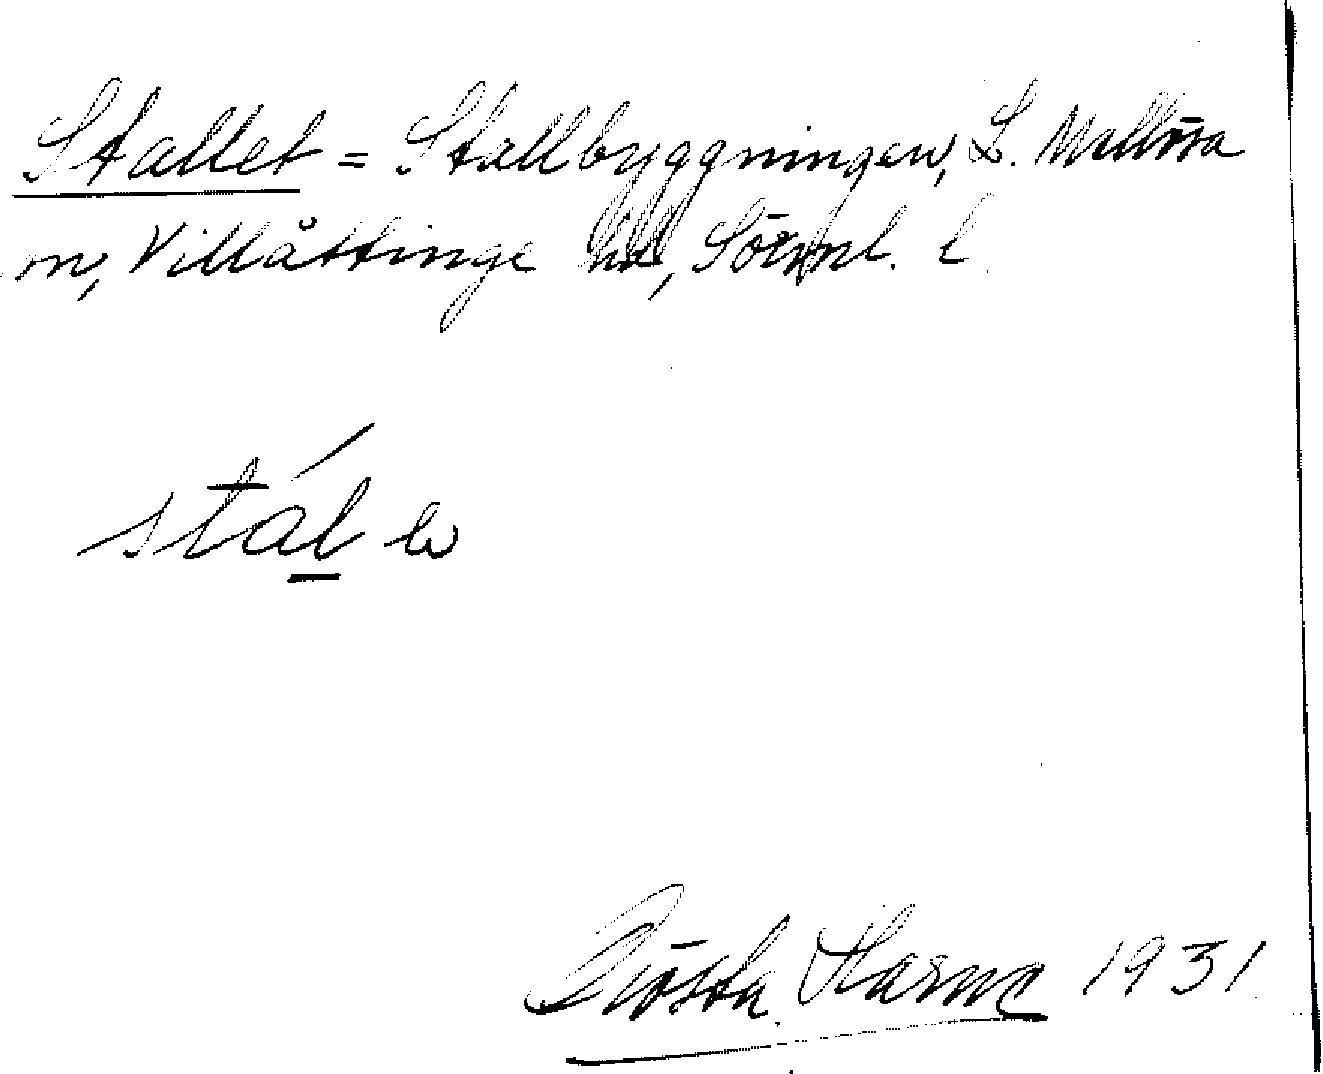 Stallet = Stallbyggningen, L. Mellösa
sn, Villåttinge hd, Sörml. l.
Gösta 1931